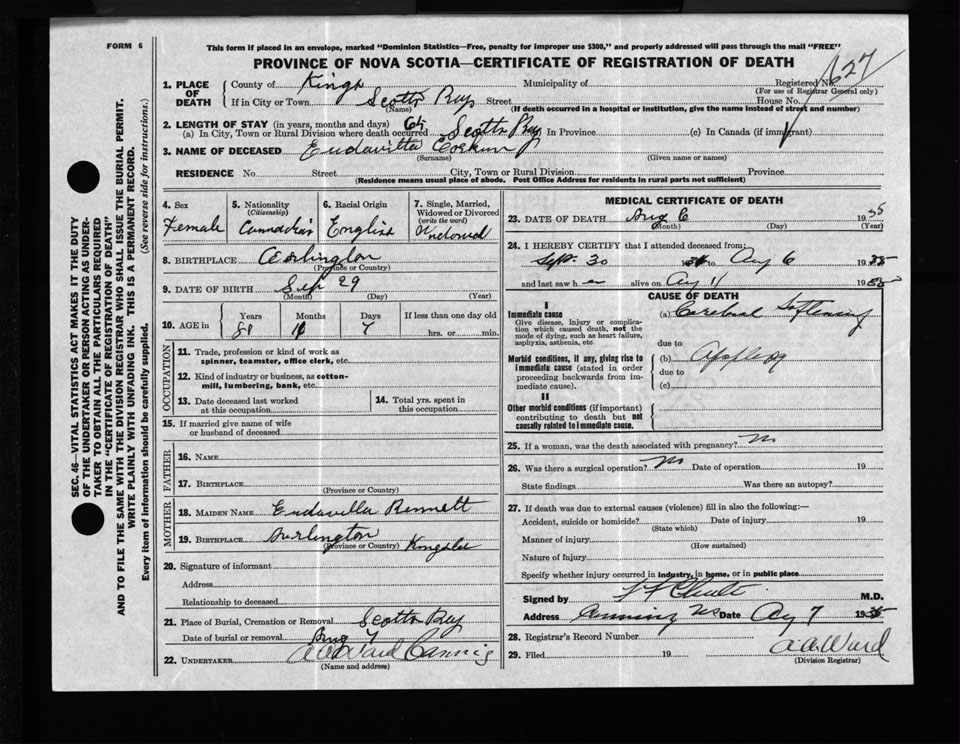 FORM 6
This form if placed in an envelope, marked "Dominion Statistics—Free, penalty for improper use $300," and properly addressed will pass through the mail "FREE"
PROVINCE OF NOVA SCOTIA—CERTIFICATE OF REGISTRATION OF DEATH
1. PLACE OF DEATH
County of Kings Municipality of Registered No. 627
(For use of Registrar General only)
If in City or Town Scotts Bay Street House No.
(Name) (If death occurred in a hospital or institution, give the name instead of street and number)
2. LENGTH OF STAY (in years, months and days)
(a) In City, Town or Rural Division where death occurred Scotts Bay In Province (c) In Canada (if immigrant)
3. NAME OF DECEASED Eudavilla
(Surname) (Given name or names)
RESIDENCE No Street City, Town or Rural Division Province
(Residence means usual place of abode. Post Office Address for residents in rural parts not sufficient)
4. Sex
Female
5. Nationality
(Citizenship)
Cannadian
6. Racial Origin
English
7. Single, Married, Widowed or Divorced
(write the word)
Widowed
8. BIRTHPLACE
(Province or Country)
9. DATE OF BIRTH Sep 29
(Month) (Day) (Year)
10. AGE in
Years Months Days If less than one day old
7 hrs. or min.
OCCUPATION
11. Trade, profession or kind of work as
spinner, teamster, office clerk, etc.
12. Kind of industry or business, as cotton-
mill, lumbering, bank, etc.
13. Date deceased last worked
at this occupation
14. Total yrs. spent in
this occupation
15. If married give name of wife
or husband of deceased
FATHER
16. NAME
17. BIRTHPLACE
(Province or Country)
MOTHER
18. MAIDEN NAME Eudavilla Bennett
19. BIRTHPLACE Burlington
(Province or Country) Kings
20. Signature of informant
Address
Relationship to deceased
21. Place of Burial, Cremation or Removal Scotts Bay
Date of burial or removal Aug 7
22. UNDERTAKER A A Ward Canning
(Name and address)
MEDICAL CERTIFICATE OF DEATH
23. DATE OF DEATH Aug 6 1935
(Month) (Day) (Year)
24. I HEREBY CERTIFY that I attended deceased from:
Sept. 30 to Aug 6 19
and last saw h er alive on Aug 19
CAUSE OF DEATH
I
Immediate cause
Give disease, injury or complica-
tion which caused death, not the
mode of dying, such as heart failure,
asphyxia, asthenia, etc.
(a) Cerebral Softening
due to
Morbid conditions, if any, giving rise to
immediate cause (stated in order
proceeding backwards from im-
mediate cause).
(b)
due to
(c)
II
Other morbid conditions (if important)
contributing to death but not
causally related to immediate cause.
25. If a woman, was the death associated with pregnancy? no
26. Was there a surgical operation? no Date of operation 19
State findings Was there an autopsy?
27. If death was due to external causes (violence) fill in also the following:—
Accident, suicide or homicide? Date of injury 19
(State which)
Manner of injury
(How sustained)
Nature of Injury
Specify whether injury occurred in industry, in home, or in public place
Signed by M.D.
Address Canning NS Date Aug 7 19
28. Registrar's Record Number
29. Filed 19 A A Ward
(Division Registrar)
SEC. 46—VITAL STATISTICS ACT MAKES IT THE DUTY
OF THE UNDERTAKER OR PERSON ACTING AS UNDER-
TAKER TO OBTAIN ALL THE PARTICULARS REQUIRED
IN THE "CERTIFICATE OF REGISTRATION OF DEATH"
AND TO FILE THE SAME WITH THE DIVISION REGISTRAR WHO SHALL ISSUE THE BURIAL PERMIT.
WRITE PLAINLY WITH UNFADING INK. THIS IS A PERMANENT RECORD.
Every item of information should be carefully supplied. (See reverse side for instructions.)